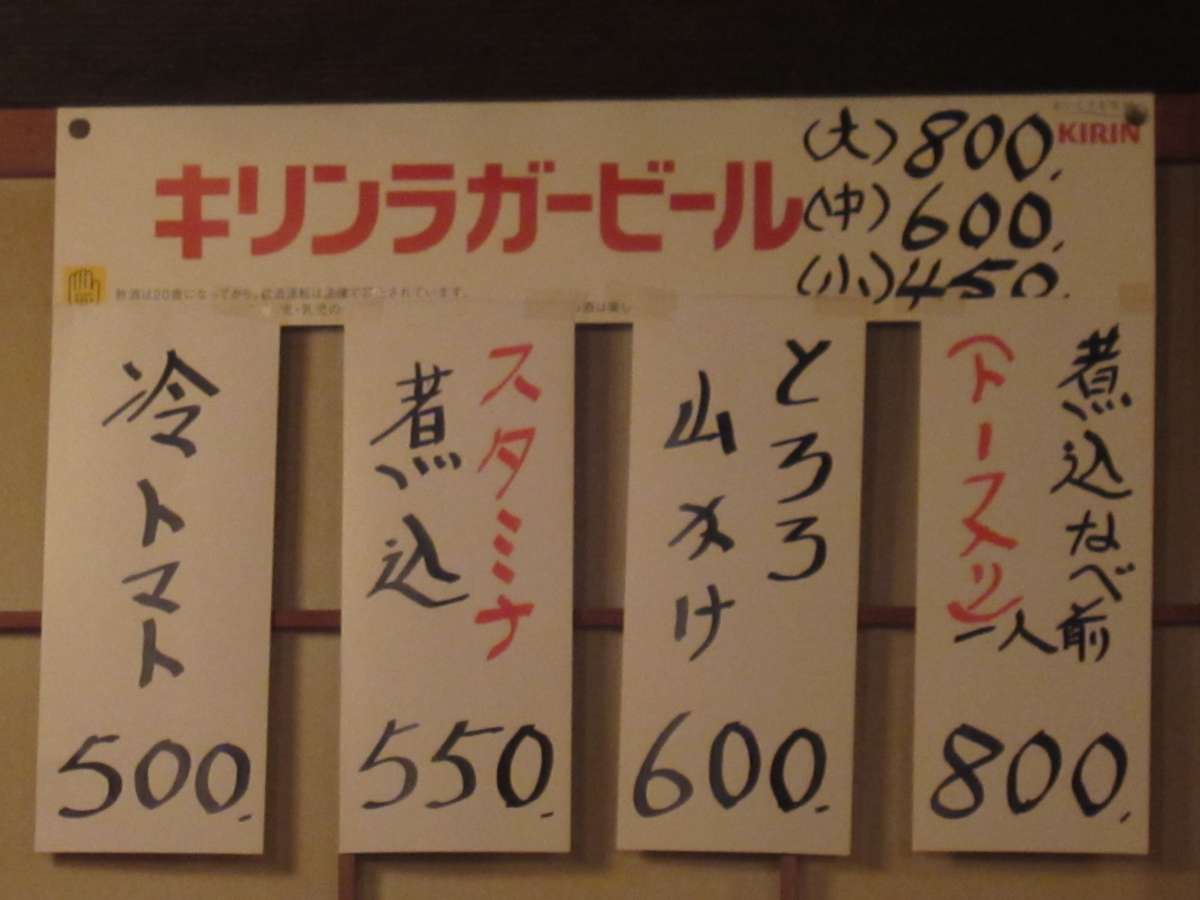 キリンラガービール
(大) 800.
KIRIN
(中) 600.
(小) 450.
飲酒は20歳になってから。飲酒運転は法律で禁止されています。
煮込なべ
一人前
(トーフ入り)
800.
とろろ
山かけ
600.
スタミナ
煮込
550.
冷トマト
500.